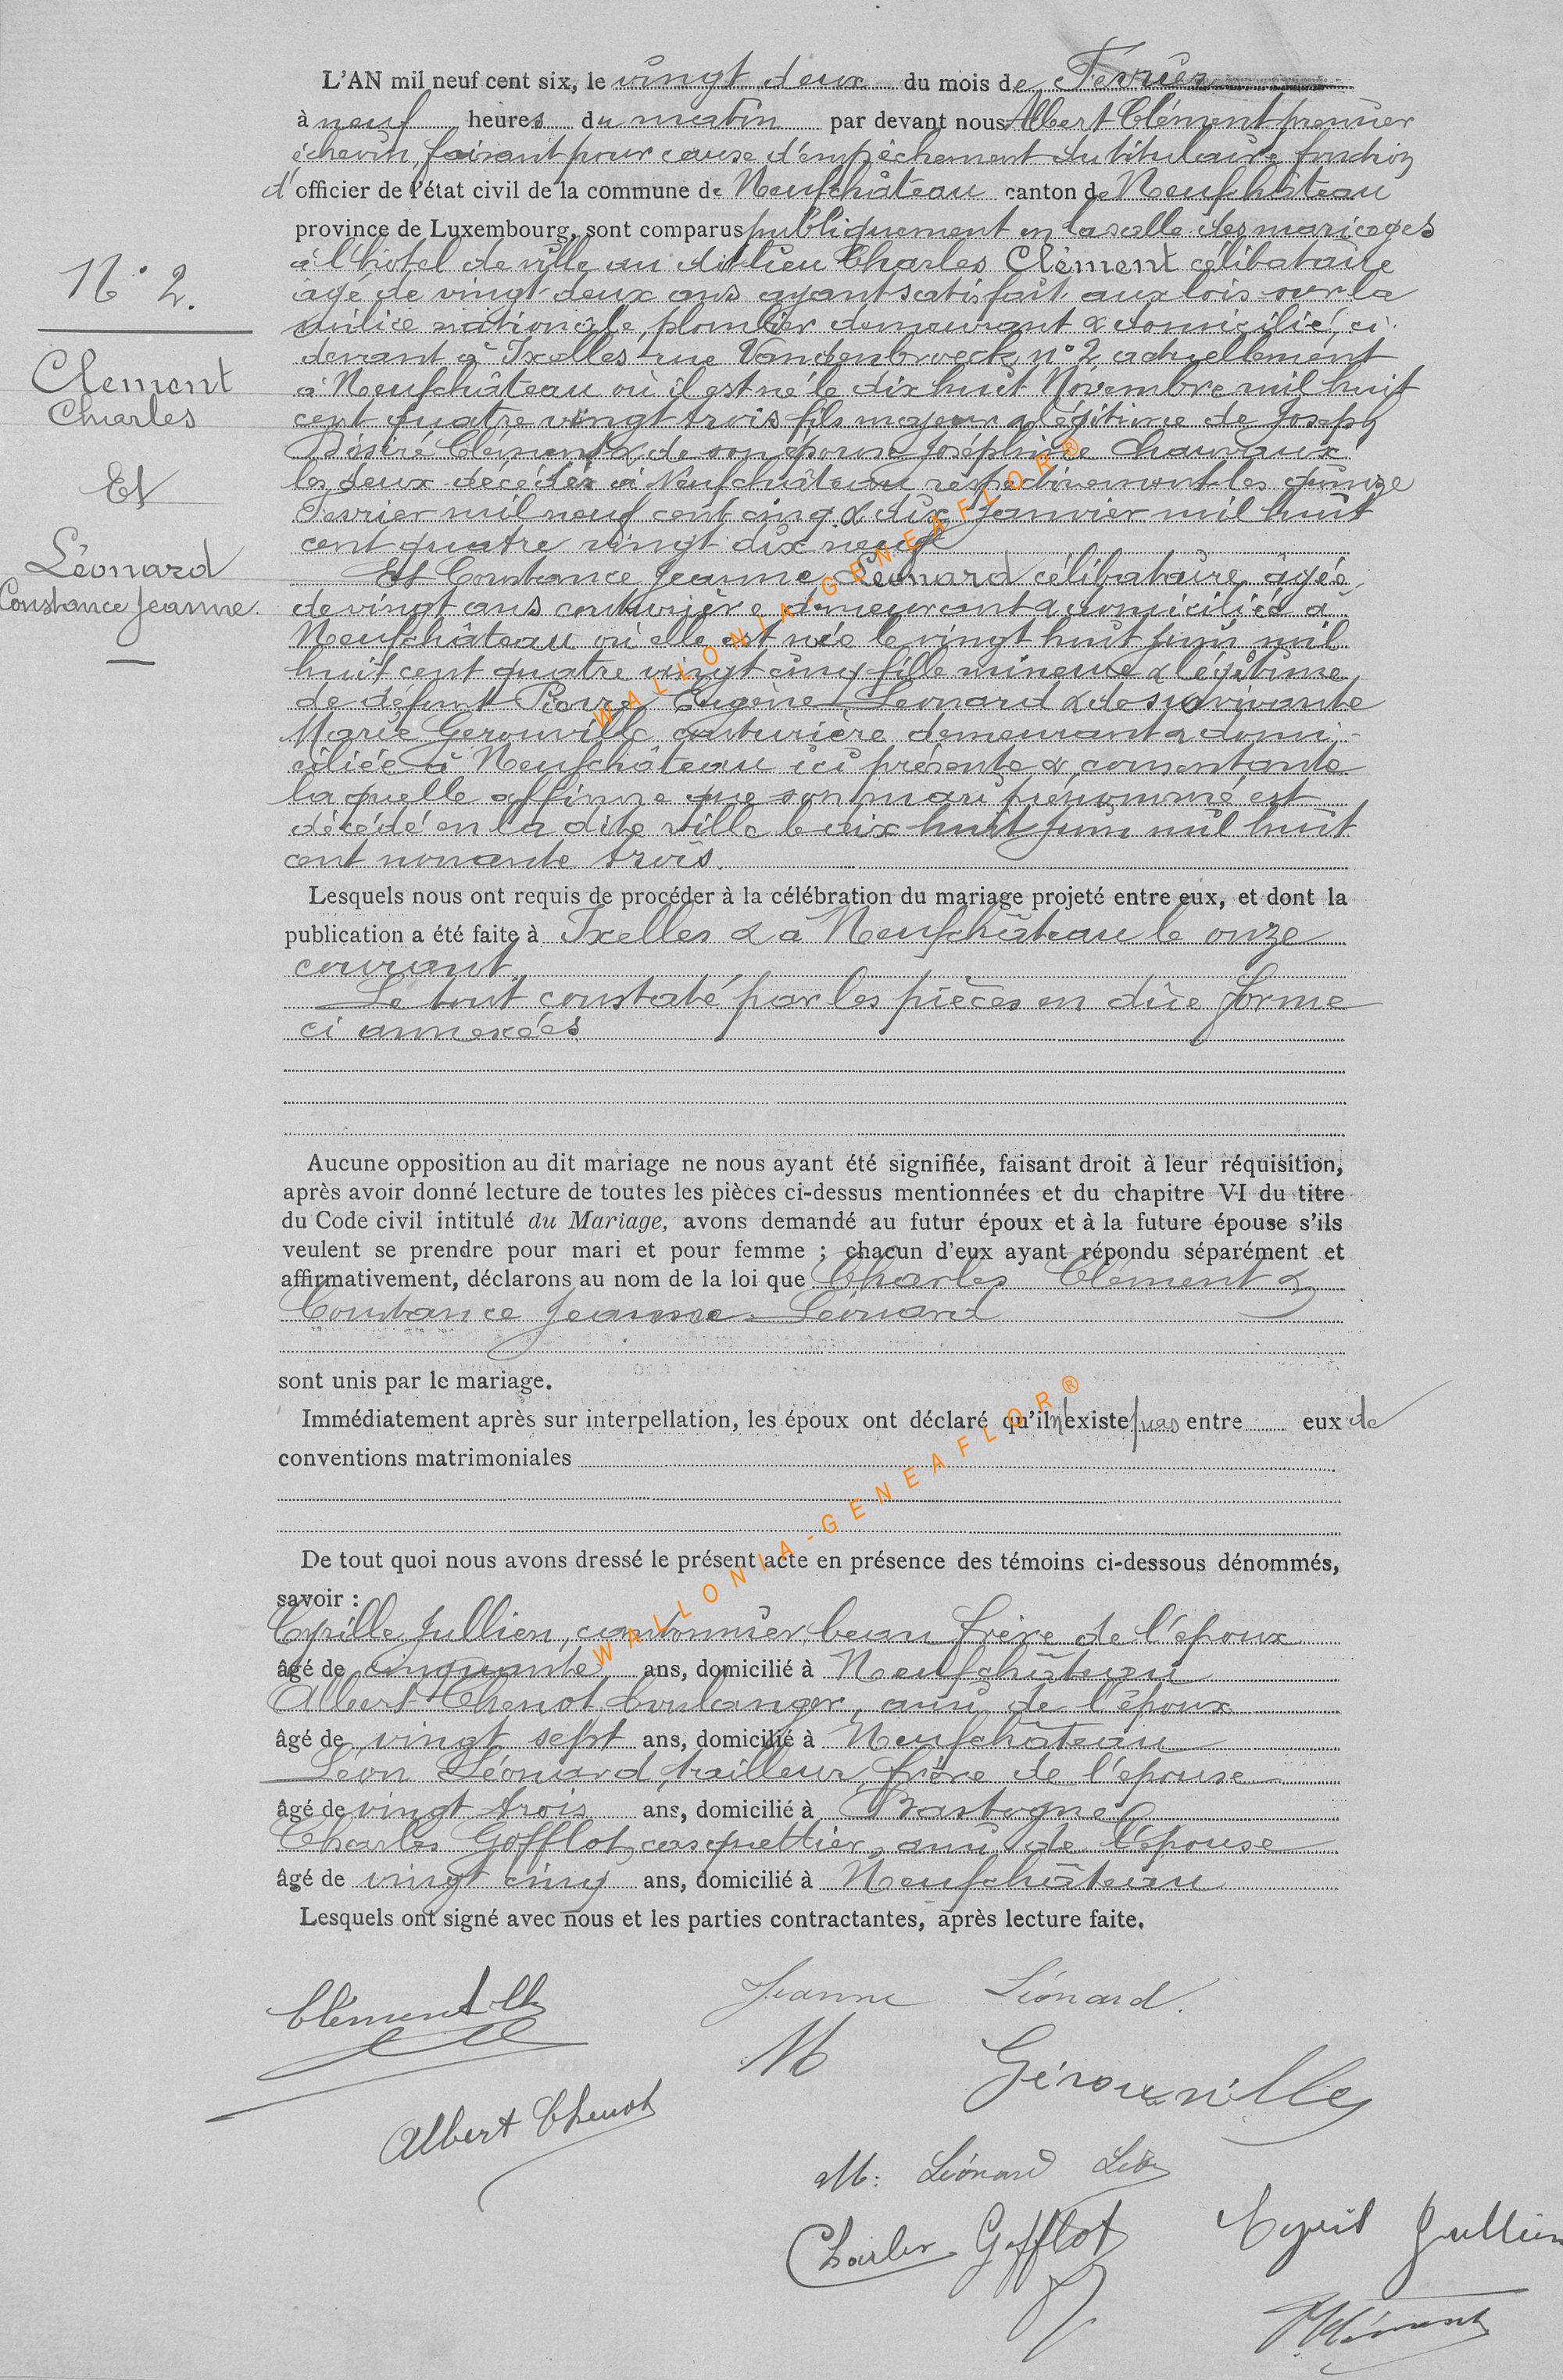 L'AN mil neuf cent six, le vingt deux du mois de Fevrier
à neuf heures du matin par devant nous Albert Clément premier
échevin, faisant pour cause d'empêchement du titulaire fonction
d'officier de l'état civil de la commune de Neufchâteau canton de Neufchâteau
province de Luxembourg, sont comparus publiquement en la salle des mariages
à l'hotel de ville au dit lieu Charles Clément célibataire
N° 2.
agé de vingt deux ans ayant satisfait aux lois sur la
milice nationale, plombier demeurant & domicilié, ci
devant à Ixelles rue Vandenbroeck n° 2 actuellement
Clement
Charles
à Neufchâteau où il est né le dix huit Novembre mil huit
cent quatre vingt trois fils majeur & légitime de Joseph
Désiré Clément & de son épouse Joséphine
Et
les deux décédés à Neufchâteau respectivement les quinze
Fevrier mil neuf cent cinq & dix Janvier mil huit
cent quatre vingt dix neuf
Léonard
Constance Jeanne.
Et Constance Jeanne Léonard célibataire, âgée
de vingt ans couturière demeurant & domiciliée à
Neufchâteau où elle est née le vingt huit Juin mil
huit cent quatre vingt cinq fille mineure & légitime
de défunt Pierre Eugène Leonard & de survivante
Marie Gerouville couturière demeurant & domi-
ciliée à Neufchâteau ici présente & consentante
laquelle affirme que son mari prénommé est
décédé en la dite ville le dix huit Juin mil huit
cent nonante trois.
Lesquels nous ont requis de procéder à la célébration du mariage projeté entre eux, et dont la
publication a été faite à Ixelles & à Neufchâteau le onze
courant
Le tout constaté par les pièces en due forme
ci annexées
Aucune opposition au dit mariage ne nous ayant été signifiée, faisant droit à leur réquisition,
après avoir donné lecture de toutes les pièces ci-dessus mentionnées et du chapitre VI du titre
du Code civil intitulé du Mariage, avons demandé au futur époux et à la future épouse s'ils
veulent se prendre pour mari et pour femme ; chacun d'eux ayant répondu séparément et
affirmativement, déclarons au nom de la loi que Charles Clément &
Constance Jeanne Léonard
sont unis par le mariage.
Immédiatement après sur interpellation, les époux ont déclaré qu'il n'existe pas entre eux de
conventions matrimoniales
De tout quoi nous avons dressé le présent acte en présence des témoins ci-dessous dénommés,
savoir :
Cyrille Jullien, cantonnier, beau frère de l'époux
âgé de cinquante ans, domicilié à Neufchâteau
Albert Chenot, boulanger, ami de l'époux
âgé de vingt sept ans, domicilié à Neufchâteau
Léon Léonard, tailleur, frère de l'épouse
âgé de vingt trois ans, domicilié à Bastogne
Charles Gofflot, casquettier, ami de l'épouse
âgé de vingt cinq ans, domicilié à Neufchâteau
Lesquels ont signé avec nous et les parties contractantes, après lecture faite.
Clément Ch
Jeanne Léonard.
M Gérouville
Albert Chenot
M: Léonard Léon
Charles Gofflot
Cyril Jullien
Clément
WALLONIA-GENEAFLOR®
WALLONIA-GENEAFLOR®